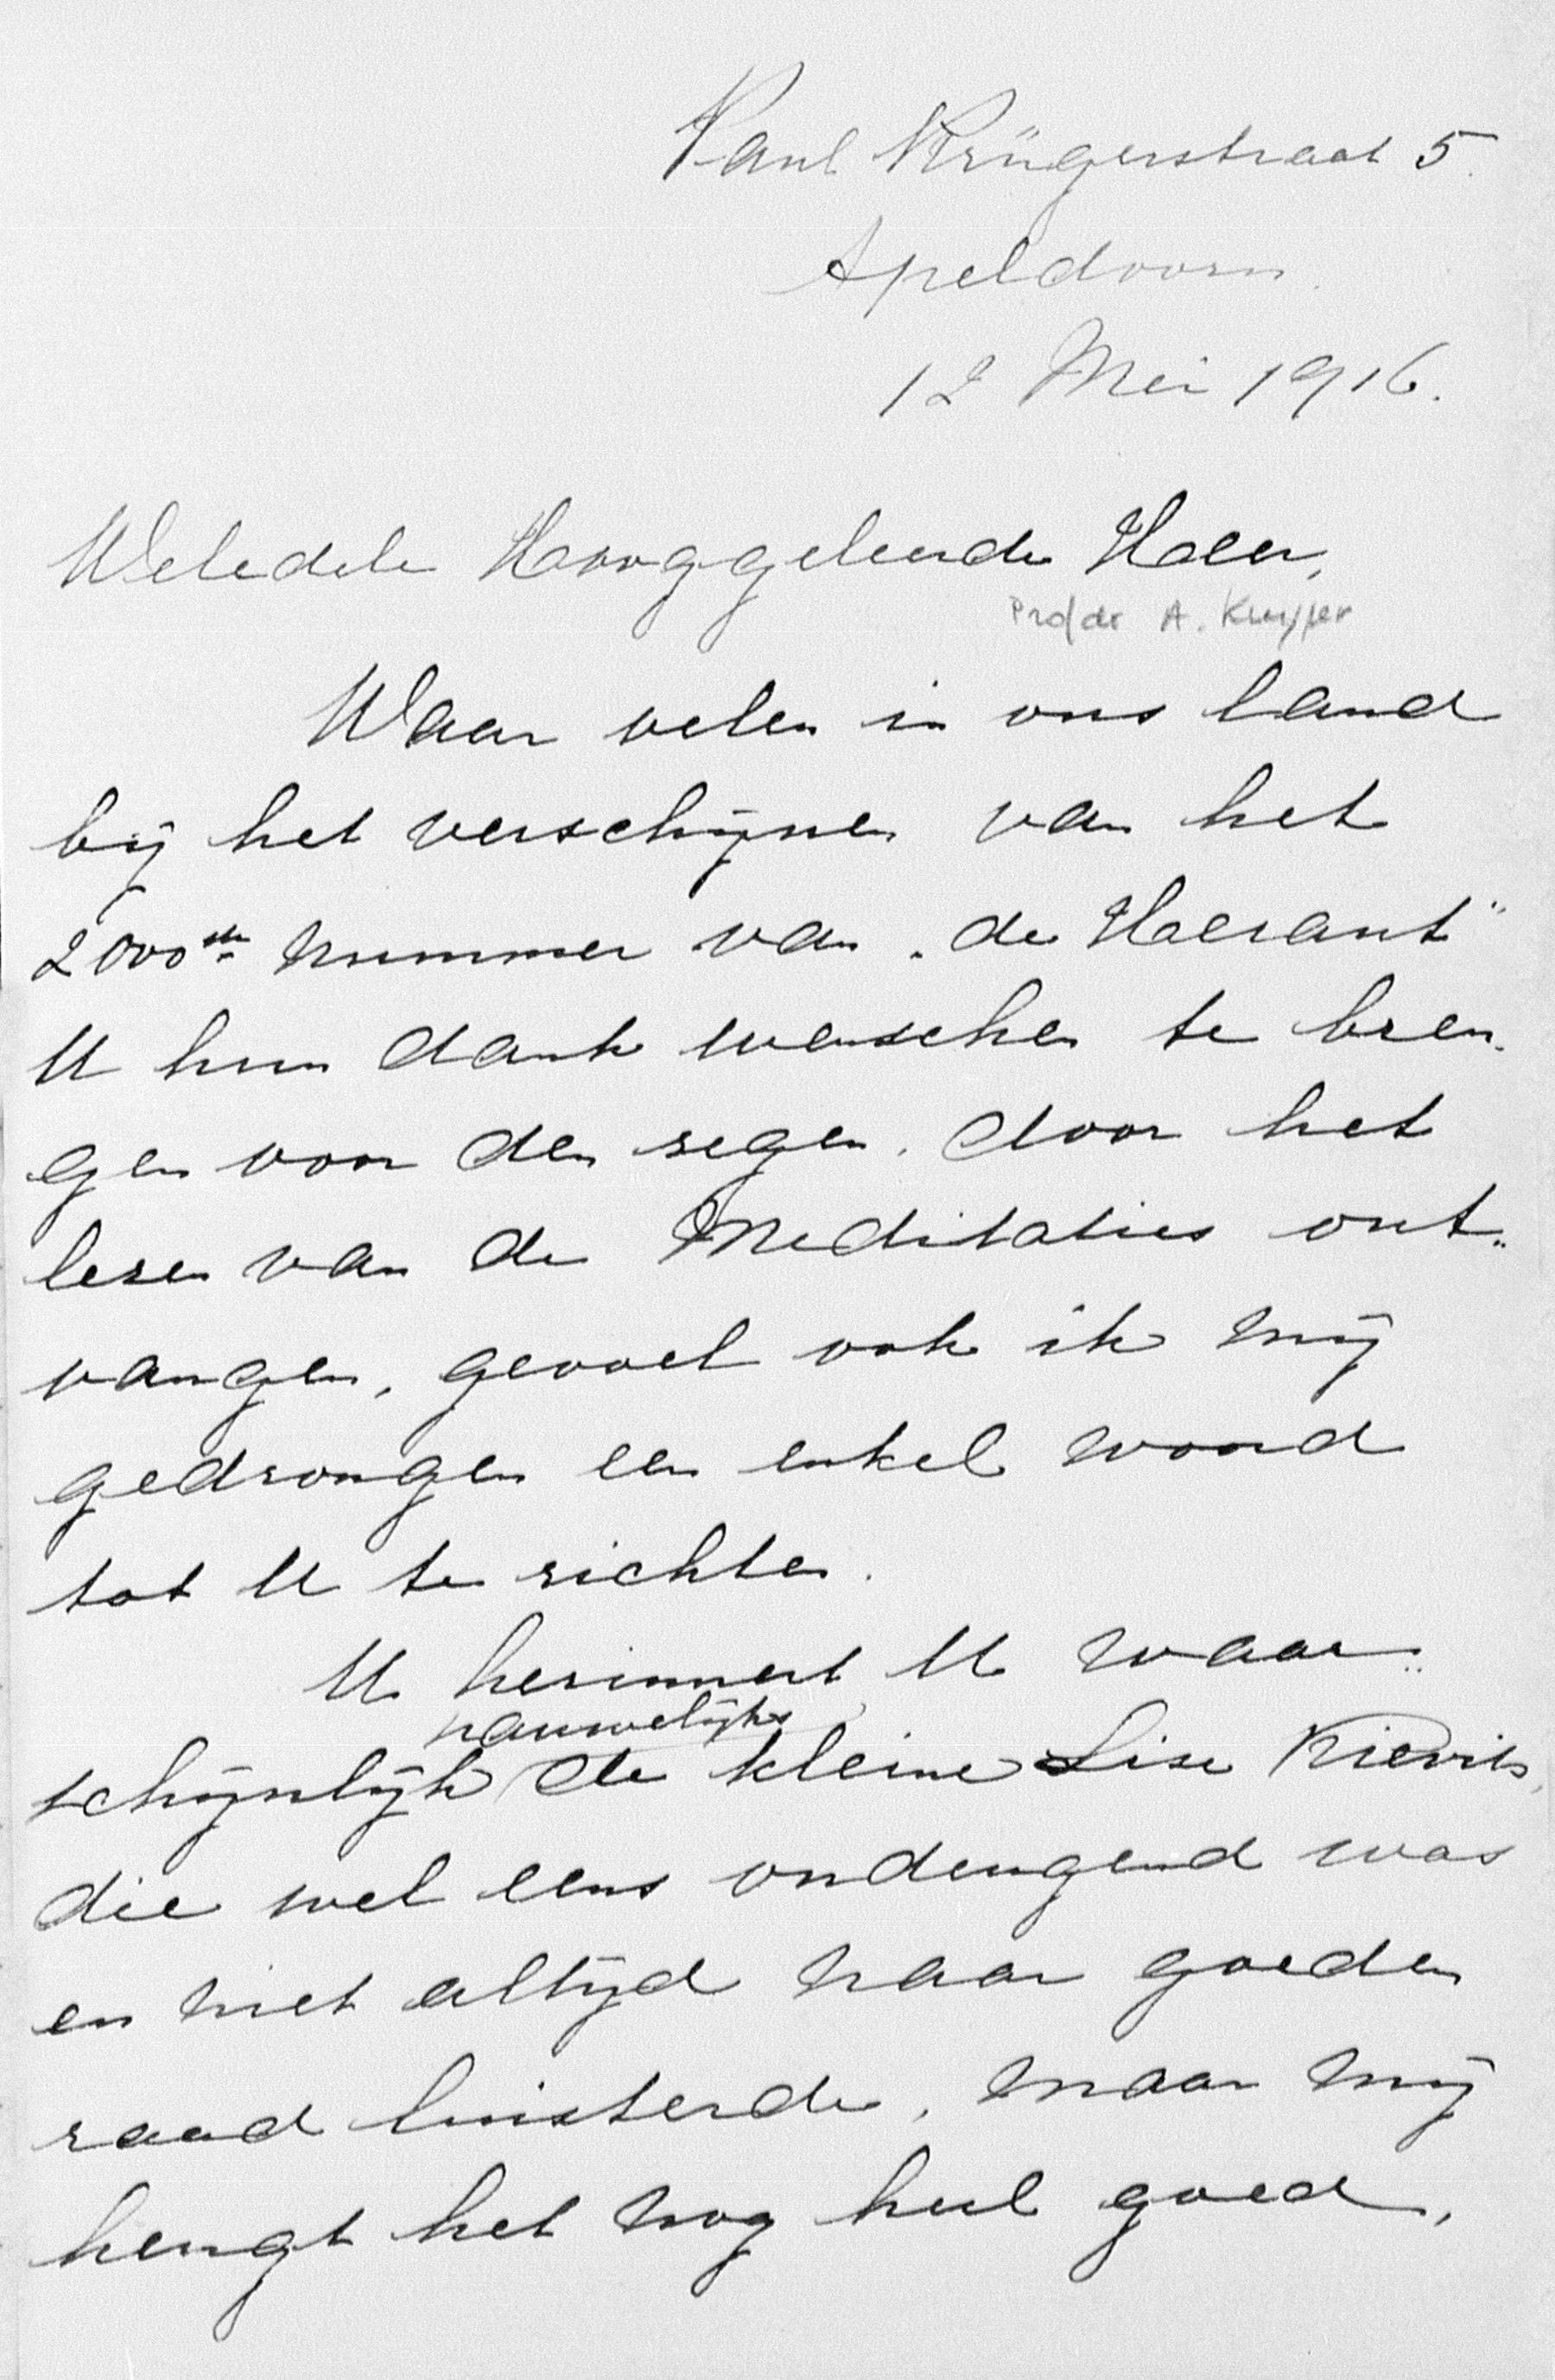 Paul Krügerstraat 5.
Apeldoorn.
12 Mei 1916.
Weledele Hooggeleerde Heer,
Prof dr A. Kuyper
Waar velen in ons land
bij het verschijnen van het
2000ste nummer van „de Heraut"
U hun dank wenschen te bren-
gen voor den zegen, door het
lezen van de Meditaties ont-
vangen, gevoel ook ik mij
gedrongen een enkel woord
tot U te richten.
U herinnert U waar-
nauwelijks
schijnlijk de kleine Lise Kievits,
die wel eens ondeugend was
en niet altijd naar goeden
raad luisterde, maar mij
heugt het nog heel goed,